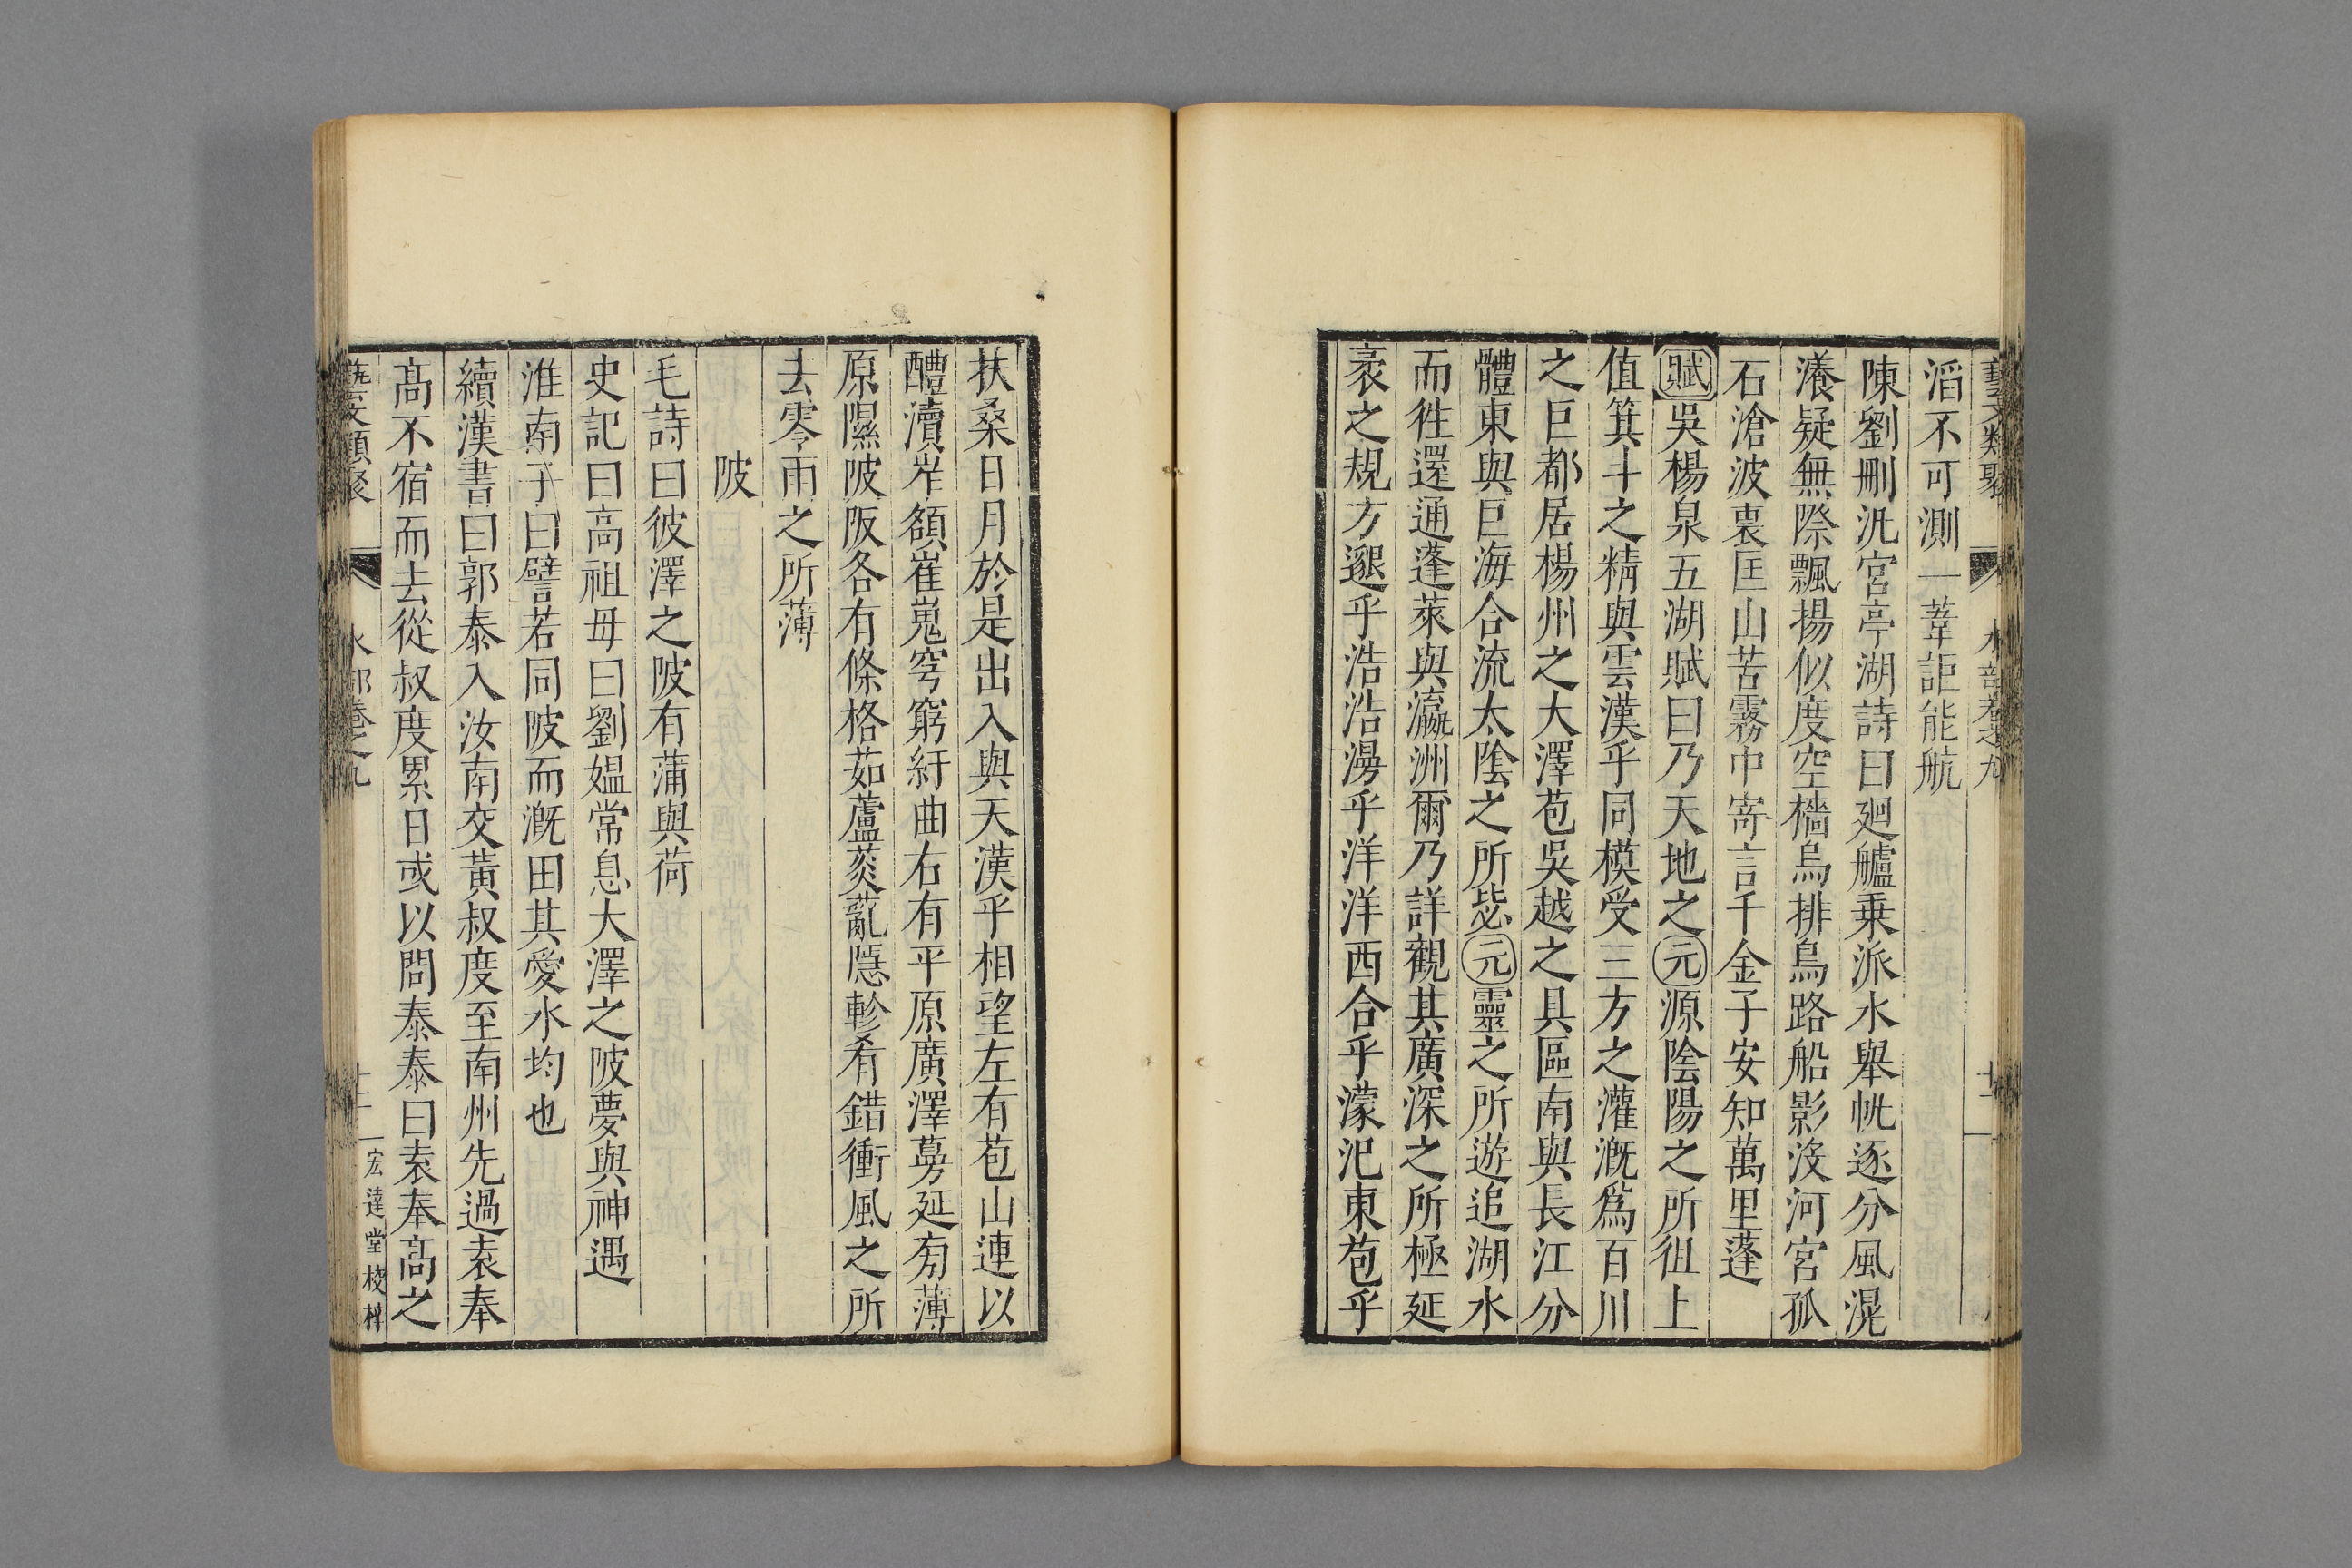 藝文類聚 水部卷之九 十二
滔不可測一葦詎能航
陳劉刪汎宮亭湖詩曰廻艫乗派水舉帆逐分風滉
瀁疑無際飄揚似度空檣烏排鳥路船影沒河宮孤
石滄波裏匡山苦霧中寄言千金子安知萬里蓬
賦吳楊泉五湖賦曰乃天地之元源陰陽之所徂上
值箕斗之精與雲漢乎同模受三方之灌漑爲百川
之巨都居楊州之大澤苞吳越之具區南與長江分
體東與巨海合流太陰之所毖元靈之所遊追湖水
而徃還通蓬萊與瀛洲爾乃詳觀其廣深之所極延
袤之規方邈乎浩浩漫乎洋洋西合乎濛汜東苞乎
扶桑日月於是出入與天漢乎相望左有苞山連以
醴瀆岝頟崔嵬穹窮紆曲右有平原廣澤蔓延旁薄
原隰陂阪各有條格茹蘆菼薍隱軫肴錯衝風之所
去零雨之所薄
陂
毛詩曰彼澤之陂有蒲與荷
史記曰高祖母曰劉媼常息大澤之陂夢與神遇
淮南子曰譬若同陂而漑田其愛水均也
續漢書曰郭泰入汝南交黃叔度至南州先過袁奉
髙不宿而去從叔度累日或以問泰泰曰袁奉髙之
藝文類聚 水部卷之九 十二 宏達堂校梓